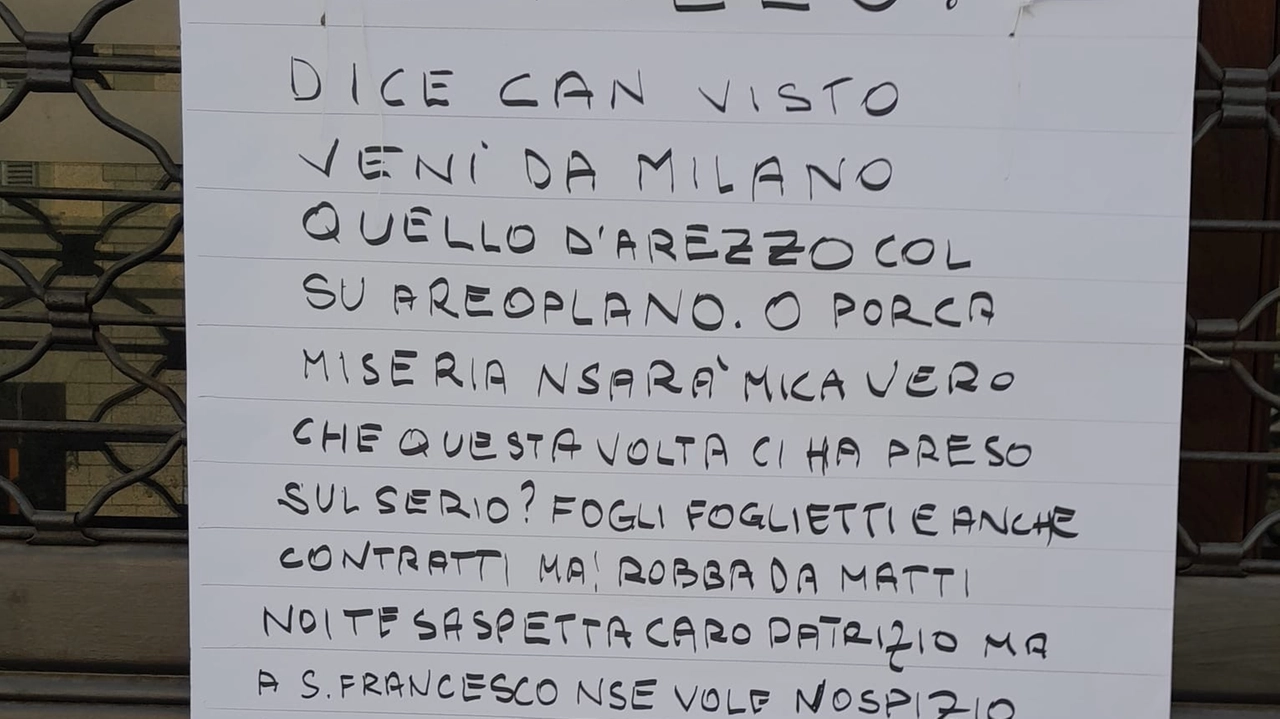 DICE CAN VISTO
VENÌ DA MILANO
QUELLO D'AREZZO COL
SU AREOPLANO. O PORCA
MISERIA NSARA' MICA VERO
CHE QUESTA VOLTA CI HA PRESO
SUL SERIO? FOGLI FOGLIETTI E ANCHE
CONTRATTI MA! ROBBA DA MATTI
NOI TE SASPETTA CARO PATRIZIO MA
A S. FRANCESCO NSE VOLE NOSPIZIO